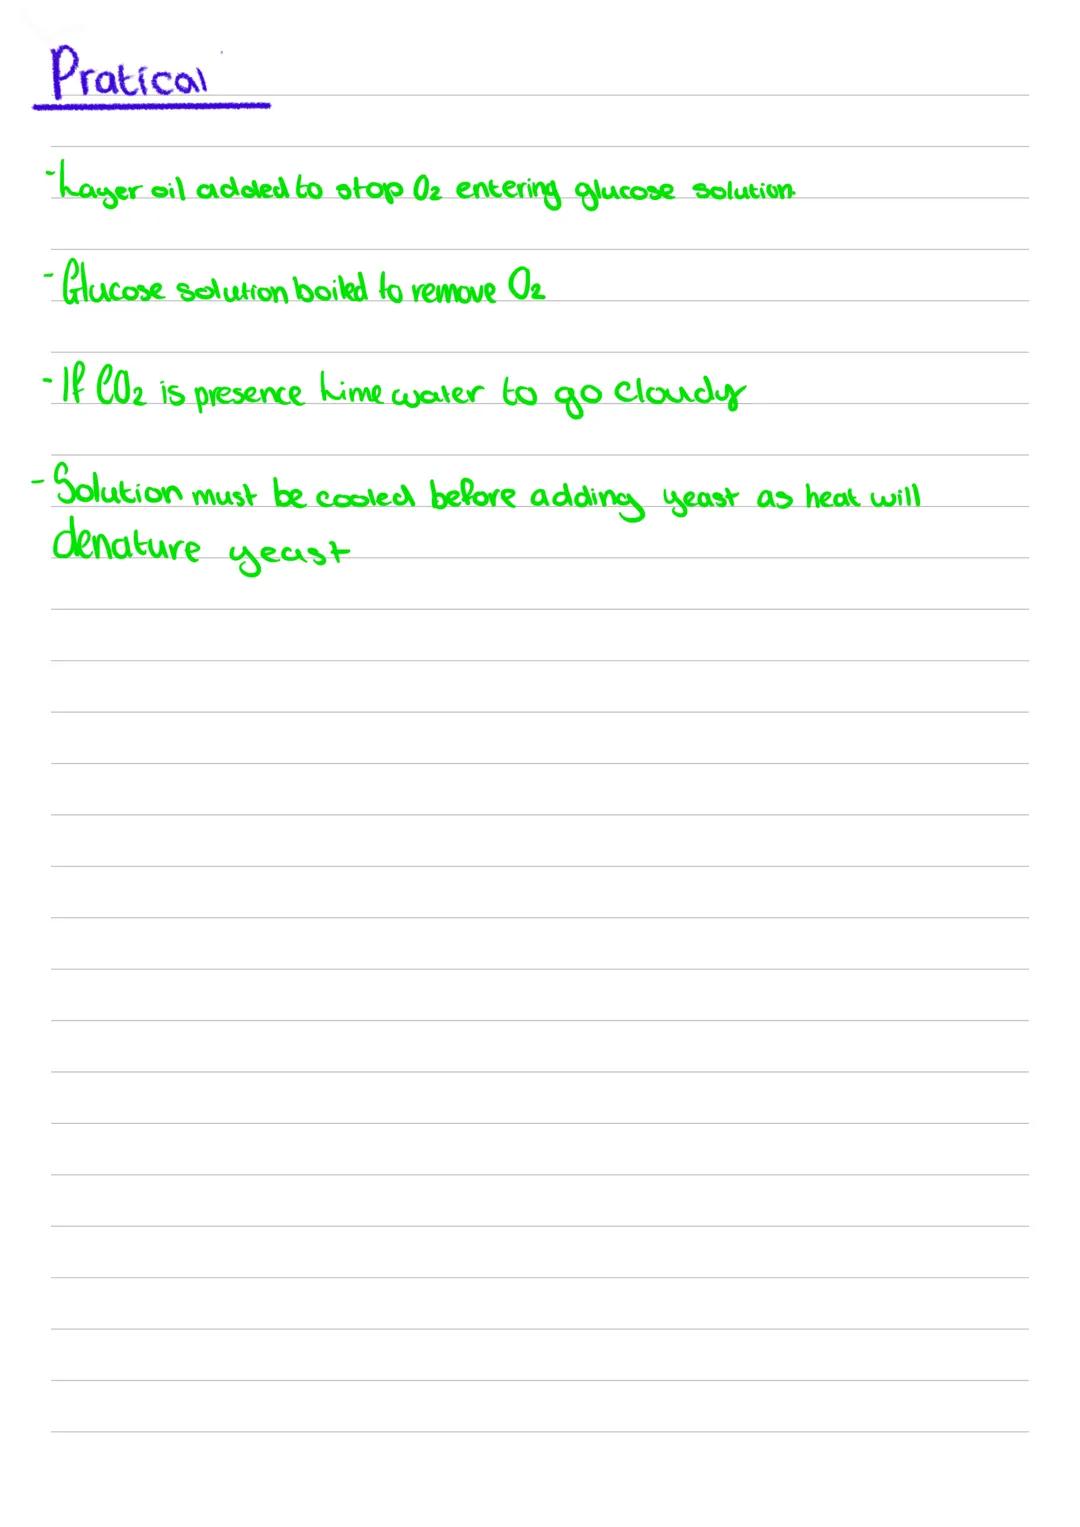 Pratical
-Layer oil added to stop O₂ entering glucose solution.
-Glucose solution boiled to remove O₂
-If CO₂ is presence Lime water to go cloudy
-Solution must be cooled before adding yeast as heat will
denature yeast